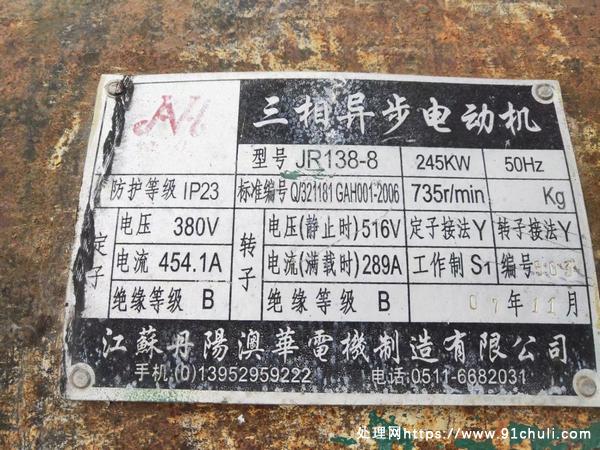 三相异步电动机
型号 JR138-8 245KW 50Hz
防护等级 IP23 标准编号 Q/321181 GAH001-2006 735r/min Kg
定子 电压 380V 转子 电压(静止时) 516V 定子接法Y 转子接法Y
电流 454.1A 电流(满载时) 289A 工作制 S1 编号
绝缘等级 B 绝缘等级 B 07年11月
江蘇丹陽澳華電機制造有限公司
手机:(0)13952959222 电话:0511-6682031
处理网https://www.91chuli.com/